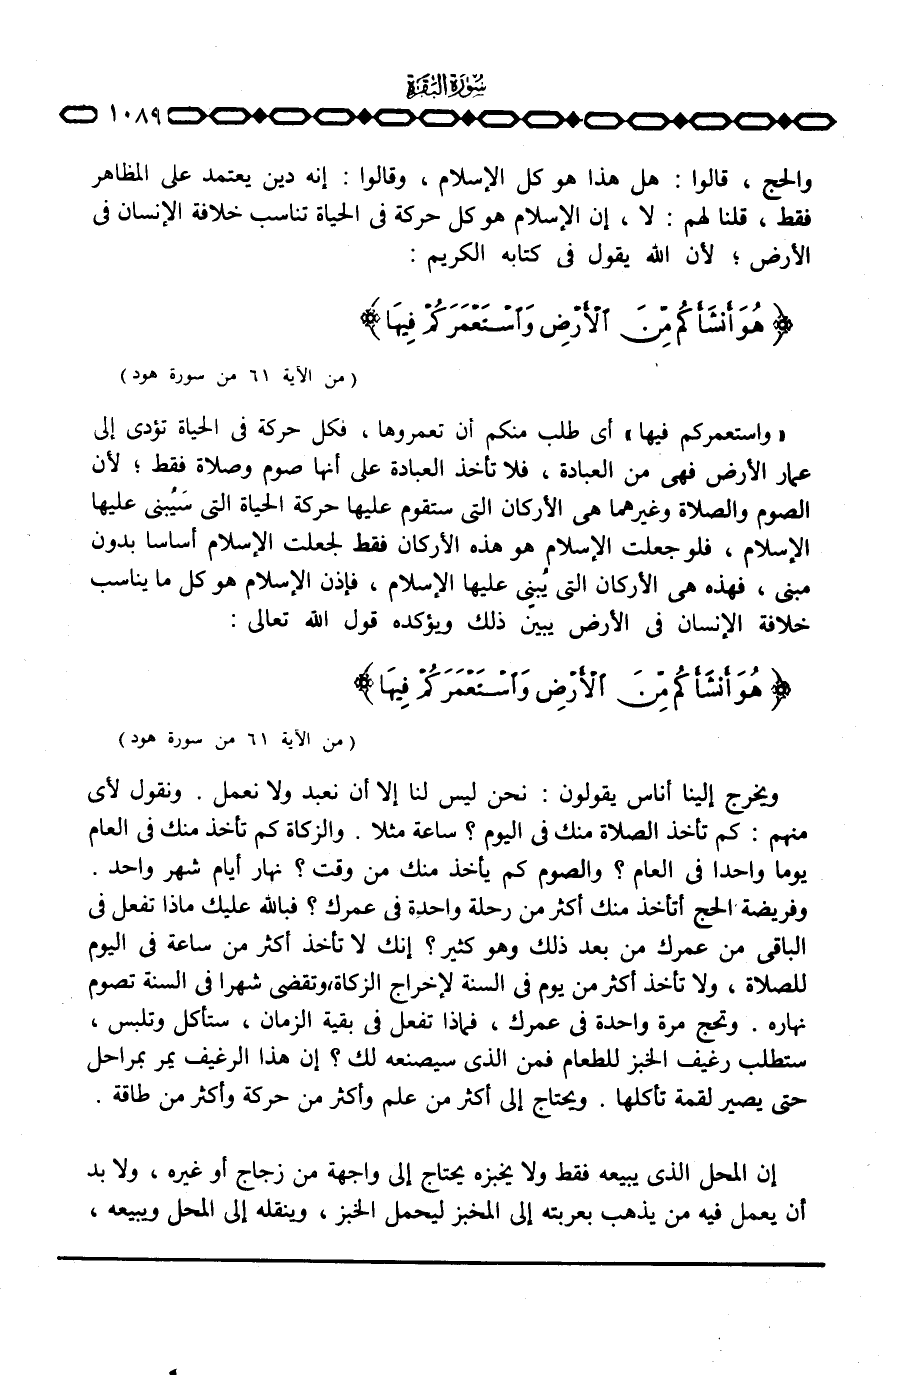 سُورَةُ البَقَرَة
١٠٨٩
والحج ، قالوا : هل هذا هو كل الإسلام ، وقالوا : إنه دين يعتمد على المظاهر
فقط ، قلنا لهم : لا ، إن الإسلام هو كل حركة فى الحياة تناسب خلافة الإنسان فى
الأرض ؛ لأن الله يقول فى كتابه الكريم :
﴿ هُوَ أَنشَأَكُم مِّنَ ٱلْأَرْضِ وَٱسْتَعْمَرَكُمْ فِيهَا ﴾
( من الآية ٦١ من سورة هود )
« واستعمركم فيها » أى طلب منكم أن تعمروها ، فكل حركة فى الحياة تؤدى إلى
عمار الأرض فهى من العبادة ، فلا تأخذ العبادة على أنها صوم وصلاة فقط ؛ لأن
الصوم والصلاة وغيرهما هى الأركان التى ستقوم عليها حركة الحياة التى سَيُبنى عليها
الإسلام ، فلو جعلت الإسلام هو هذه الأركان فقط لجعلت الإسلام أساسا بدون
مبنى ، فهذه هى الأركان التى يُبنى عليها الإسلام ، فإذن الإسلام هو كل ما يناسب
خلافة الإنسان فى الأرض يبينّ ذلك ويؤكده قول الله تعالى :
﴿ هُوَ أَنشَأَكُم مِّنَ ٱلْأَرْضِ وَٱسْتَعْمَرَكُمْ فِيهَا ﴾
( من الآية ٦١ من سورة هود )
ويخرج إلينا أناس يقولون : نحن ليس لنا إلا أن نعبد ولا نعمل . ونقول لأى
منهم : كم تأخذ الصلاة منك فى اليوم ؟ ساعة مثلا . والزكاة كم تأخذ منك فى العام
يوما واحدا فى العام ؟ والصوم كم يأخذ منك من وقت ؟ نهار أيام شهر واحد .
وفريضة الحج أتأخذ منك أكثر من رحلة واحدة فى عمرك ؟ فبالله عليك ماذا تفعل فى
الباقى من عمرك من بعد ذلك وهو كثير ؟ إنك لا تأخذ أكثر من ساعة فى اليوم
للصلاة ، ولا تأخذ أكثر من يوم فى السنة لإخراج الزكاة،وتقضى شهرا فى السنة تصوم
نهاره . وتحج مرة واحدة فى عمرك ، فماذا تفعل فى بقية الزمان ، ستأكل وتلبس ،
ستطلب رغيف الخبز للطعام فمن الذى سيصنعه لك ؟ إن هذا الرغيف يمر بمراحل
حتى يصير لقمة تأكلها . ويحتاج إلى أكثر من علم وأكثر من حركة وأكثر من طاقة .
إن المحل الذى يبيعه فقط ولا يخبزه يحتاج إلى واجهة من زجاج أو غيره ، ولا بد
أن يعمل فيه من يذهب بعربته إلى المخبز ليحمل الخبز ، وينقله إلى المحل ويبيعه ،